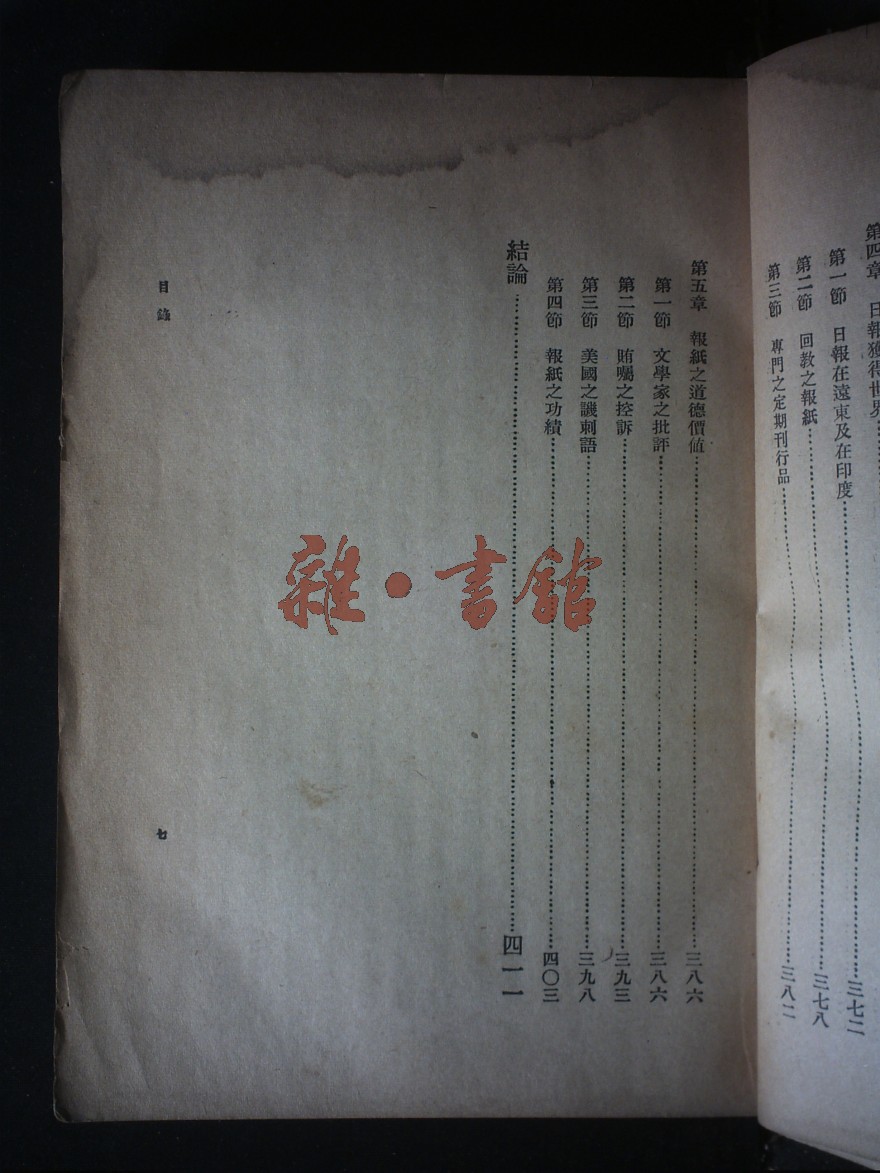 第四章 日報獲得世界
第一節 日報在遠東及在印度……三七二
第二節 回教之報紙……三七八
第三節 專門之定期刊行品……三八二
第五章 報紙之道德價值……三八六
第一節 文學家之批評……三八六
第二節 賄囑之控訴……三九三
第三節 美國之譏刺語……三九八
第四節 報紙之功績……四〇三
結論……四一一
目錄
七
雜·書館